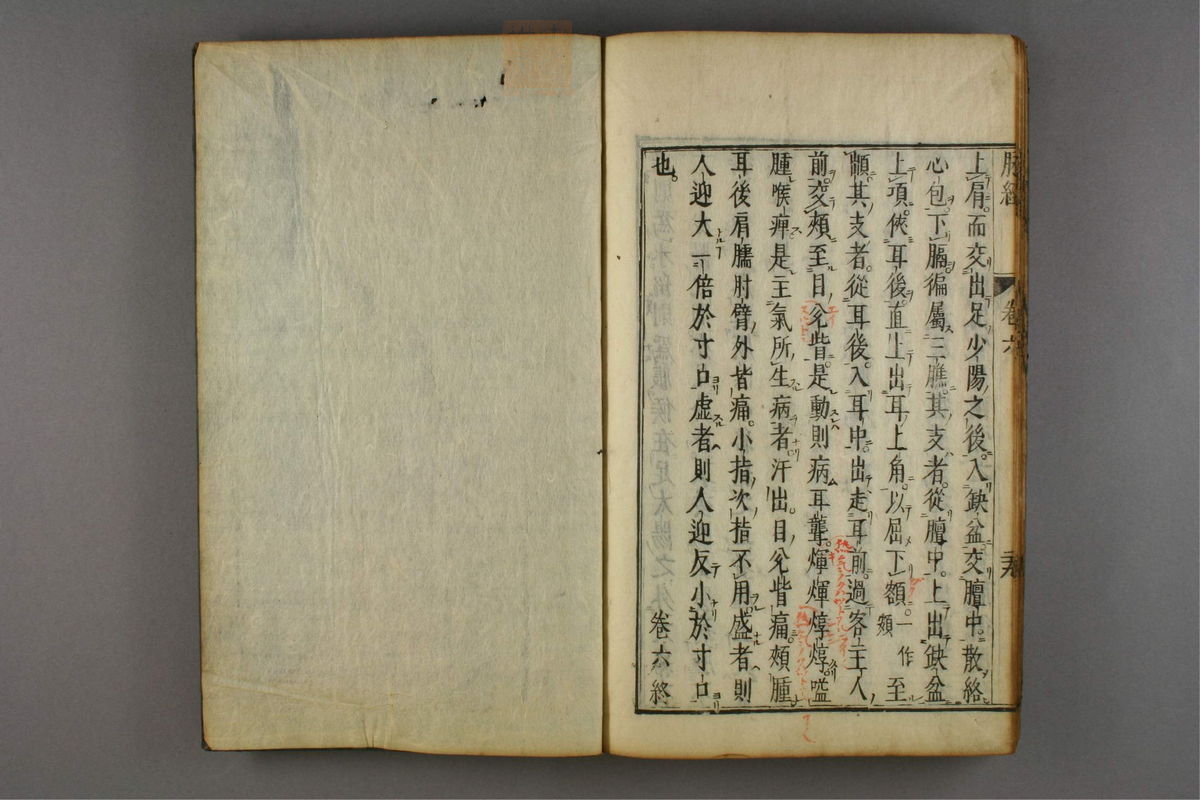 脉經 卷六
上肩而交出足少陽之後入缺盆交膻中散絡
心包下膈徧屬三膲其支者從膻中上出缺盆
上項俠耳後直上出耳上角以屈下額一作頞至
䪼其支者從耳後入耳中出走耳前過客主人
前交頰至目兊眥是動則病耳聾煇煇焞焞嗌
腫喉痺是主氣所生病者汗出目兊眥痛頰腫
耳後肩臑肘臂外皆痛小指次指不用盛者則
人迎大一倍於寸口虛者則人迎反小於寸口
也 卷六終